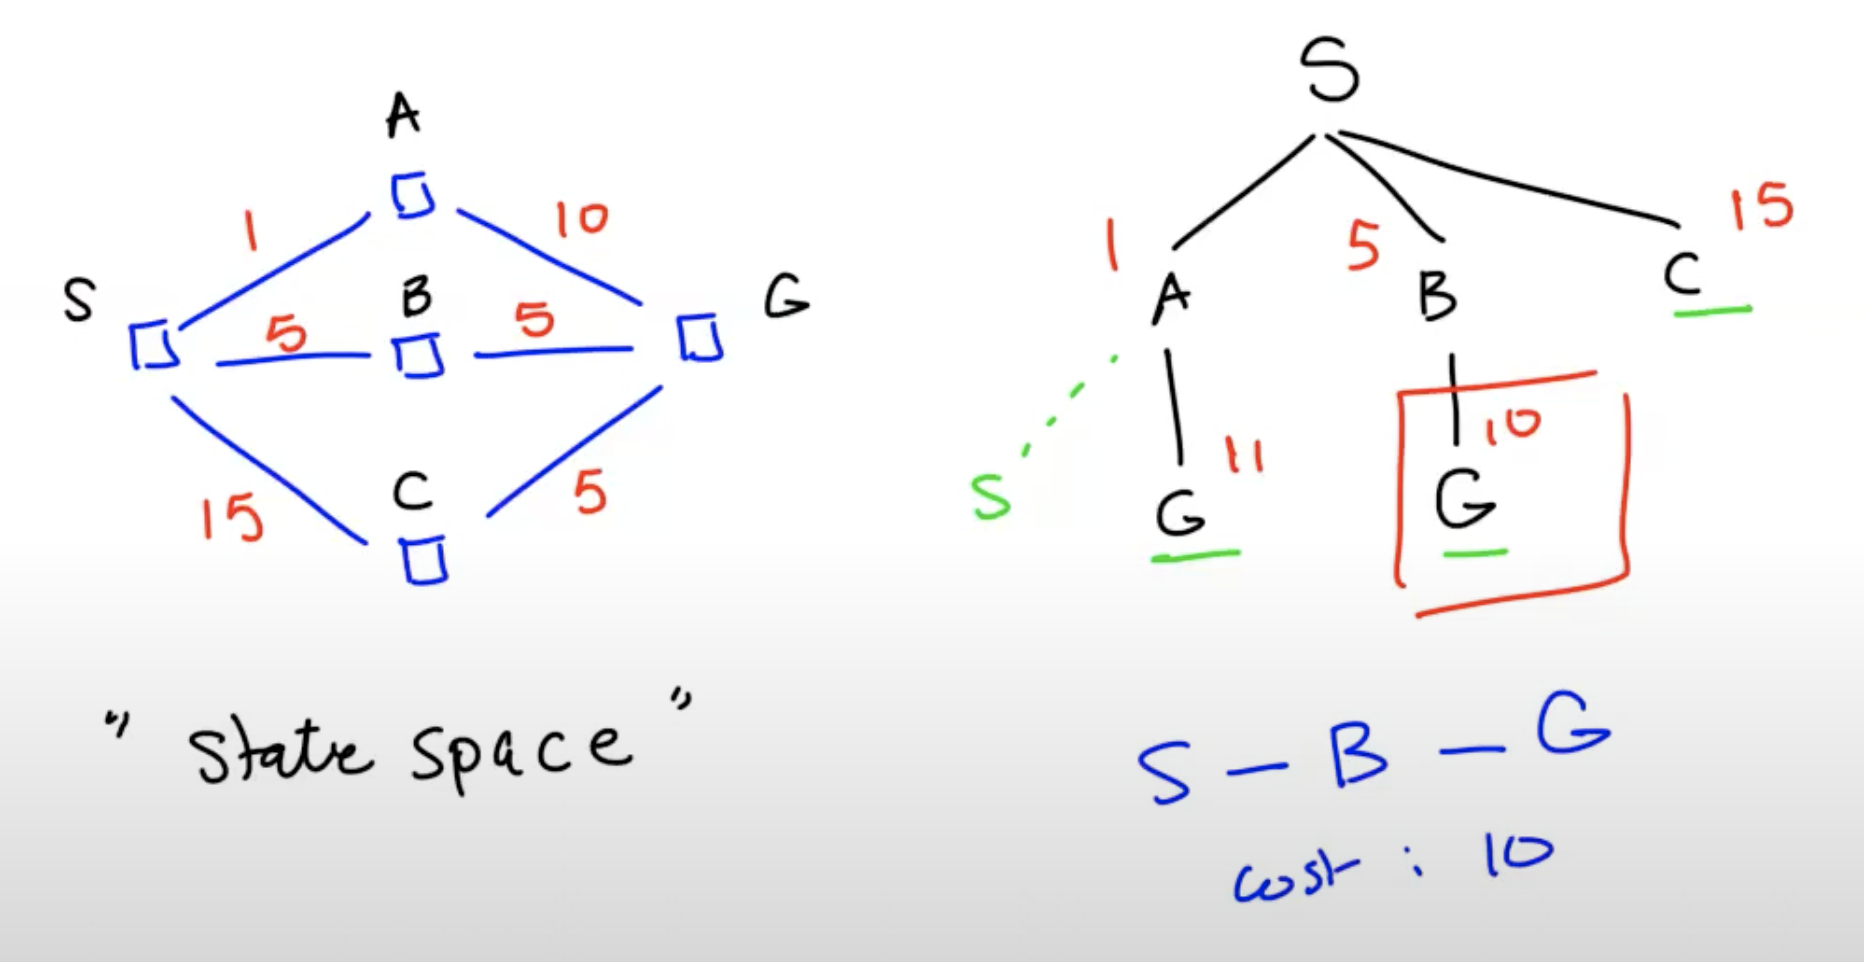 A
1
10
S
B
G
5
5
C
15
5
" State space "
S
1
5
15
A
B
C
S
11
G
10
G
S - B - G
cost : 10